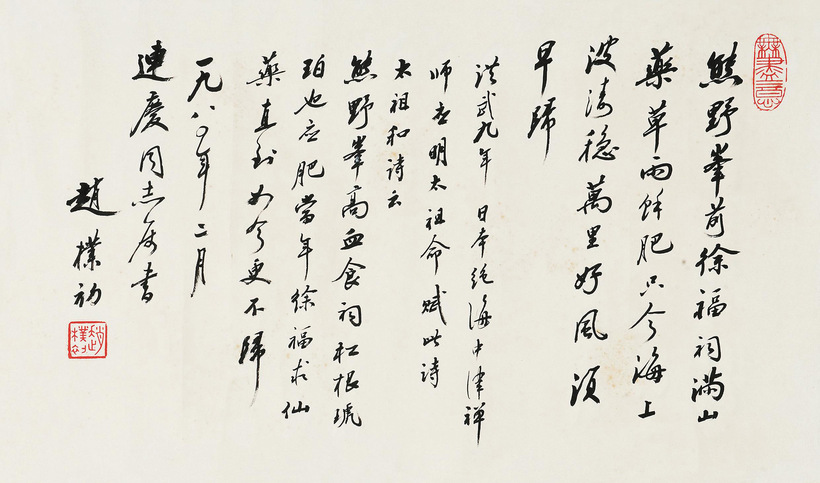 無盡意
熊野峯前徐福祠满山
藥草雨餘肥只今海上
波涛稳萬里好風須
早歸
洪武九年日本绝海中津禅
师应明太祖命赋此诗
太祖和诗云
熊野峯高血食祠松根琥
珀也应肥當年徐福求仙
藥直到如今更不歸
一九八〇年二月
連慶同志属书
趙樸初
趙樸初